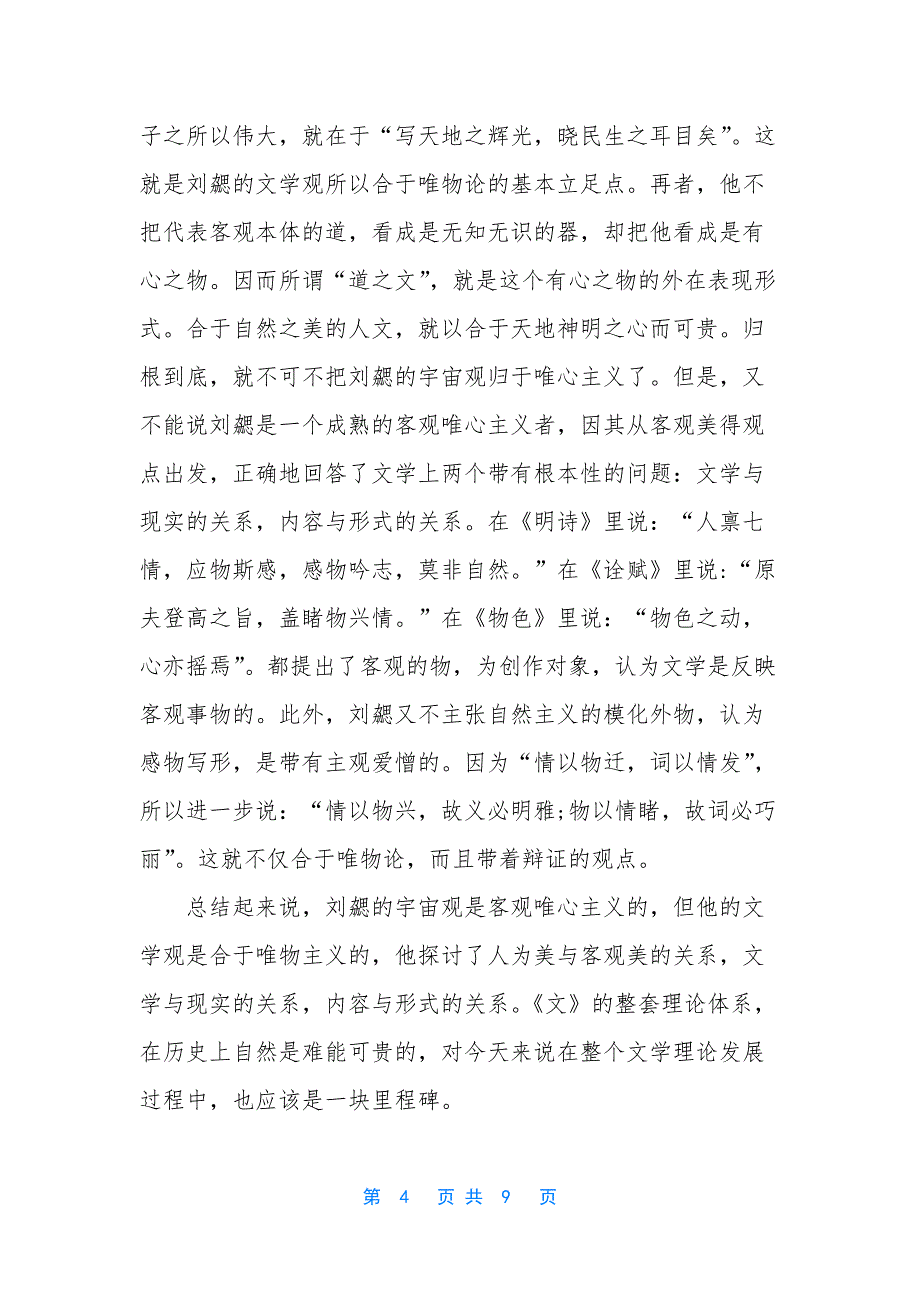 子之所以伟大，就在于“写天地之辉光，晓民生之耳目矣”。这
就是刘勰的文学观所以合于唯物论的基本立足点。再者，他不
把代表客观本体的道，看成是无知无识的器，却把他看成是有
心之物。因而所谓“道之文”，就是这个有心之物的外在表现形
式。合于自然之美的人文，就以合于天地神明之心而可贵。归
根到底，就不可不把刘勰的宇宙观归于唯心主义了。但是，又
不能说刘勰是一个成熟的客观唯心主义者，因其从客观美得观
点出发，正确地回答了文学上两个带有根本性的问题：文学与
现实的关系，内容与形式的关系。在《明诗》里说：“人禀七
情，应物斯感，感物吟志，莫非自然。”在《诠赋》里说:“原
夫登高之旨，盖睹物兴情。”在《物色》里说：“物色之动，
心亦摇焉”。都提出了客观的物，为创作对象，认为文学是反映
客观事物的。此外，刘勰又不主张自然主义的模化外物，认为
感物写形，是带有主观爱憎的。因为“情以物迁，词以情发”，
所以进一步说：“情以物兴，故义必明雅;物以情睹，故词必巧
丽”。这就不仅合于唯物论，而且带着辩证的观点。
总结起来说，刘勰的宇宙观是客观唯心主义的，但他的文
学观是合于唯物主义的，他探讨了人为美与客观美的关系，文
学与现实的关系，内容与形式的关系。《文》的整套理论体系，
在历史上自然是难能可贵的，对今天来说在整个文学理论发展
过程中，也应该是一块里程碑。
第 4 页 共 9 页